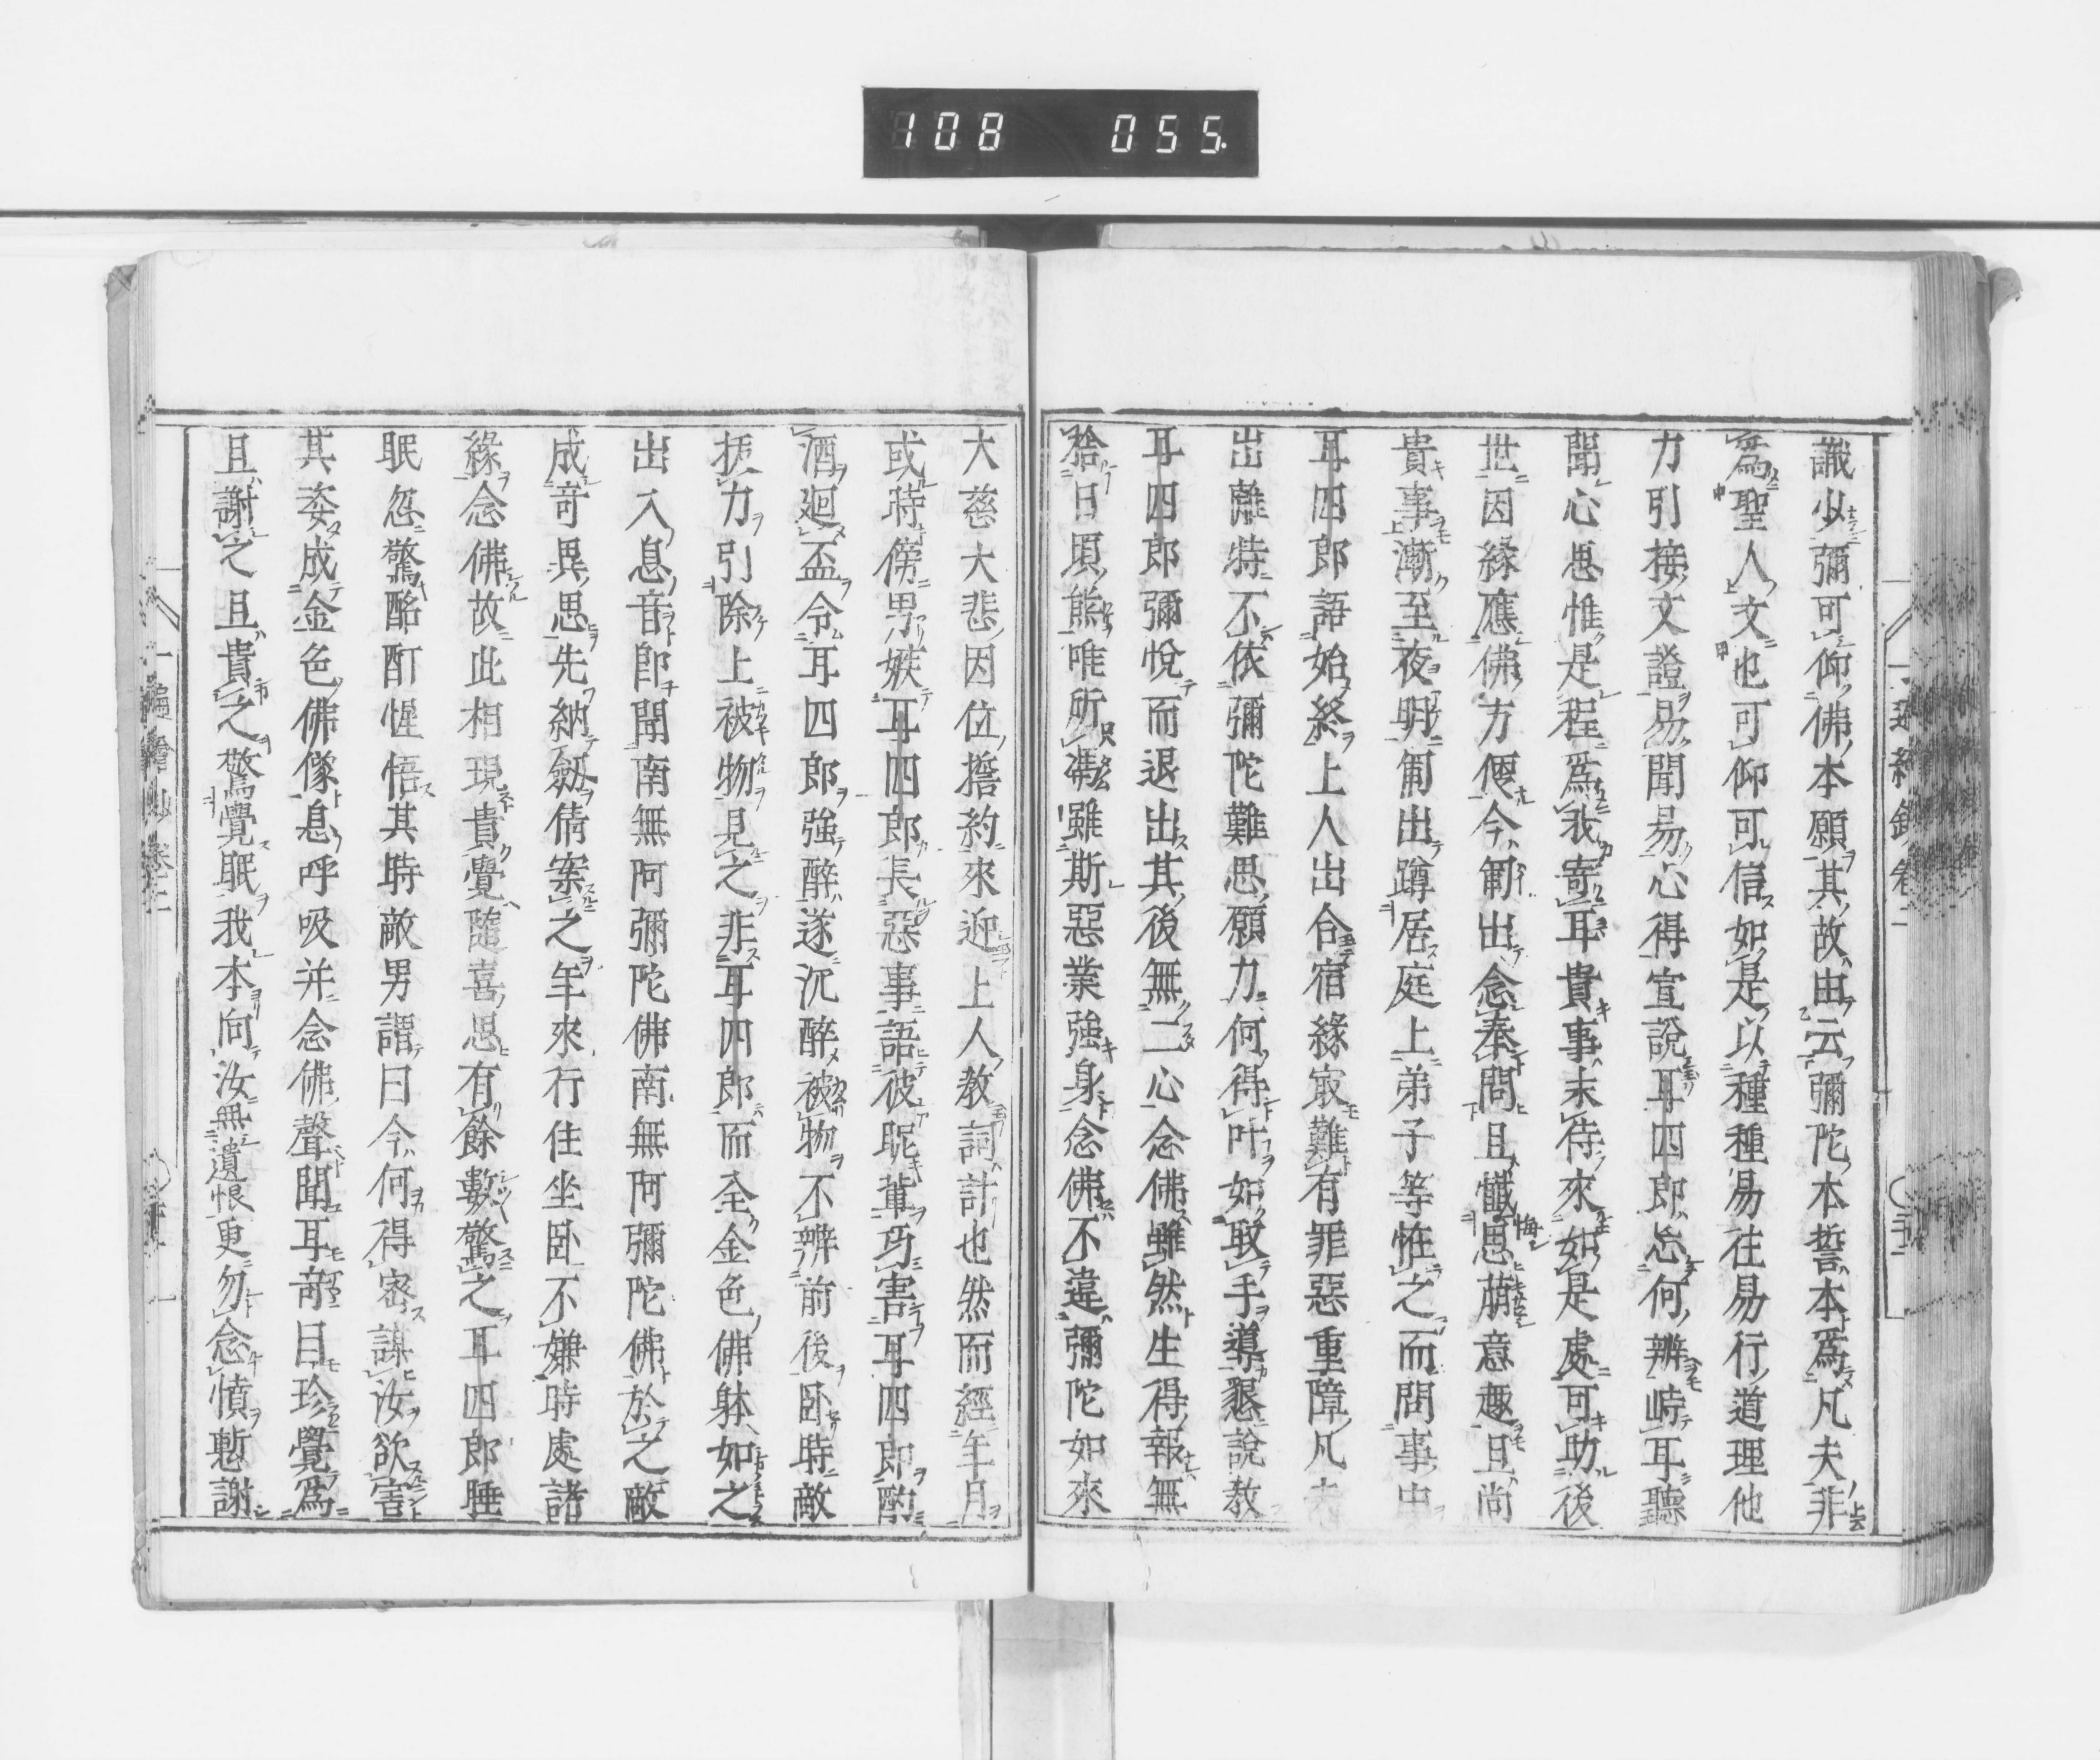 108 055
識少彌可仰佛本願其故由云彌陀本誓本爲凡夫非
爲聖人文也可仰可信如是以種種易往易行道理他
力引接文證易聞易心得宣說耳四郎怂何辨峙耳聽
聞心思惟是程爲我寄耳貴事未待來如是處可助後
世因緣應佛方便今匍出念奉問且懺悔思萠意趣且尚
貴事漸至夜明匍出蹲居庭上弟子等恠之而問事由
耳四郎語始終上人出合宿緣㝡難有罪惡重障凡夫
出離特不依彌陀難思願力何得叶如取手導懇說敎
耳四郎彌悅而退出其後無二心念佛雖然生得報無
捨日頃熊唯所馮雖斯惡業強身念佛不違彌陀如來
大慈大悲因位誓約來迎上人敎詞計也然而經年月
或時傍男嫉耳四郎長惡事語彼昵輩巧害耳四郎酌
酒廻盃令耳四郎強醉遂沉醉被物不辨前後卧時敵
拔力引除上被物見之非耳四郎而全金色佛躰如之
出入息音卽聞南無阿彌陀佛南無阿彌陀佛於之敵
成竒異思先納劔倩案之年來行住坐卧不嫌時處諸
緣念佛故此相現貴覺隨喜思有餘數驚之耳四郎睡
眠忽驚酩酊惺悟其時敵男謂曰今何得密謀汝欲害
其姿成金色佛像息呼吸并念佛聲聞耳竒目珍覺爲
且謝之且貴之驚覺眠我本向汝無遺恨更勿念憤慙謝